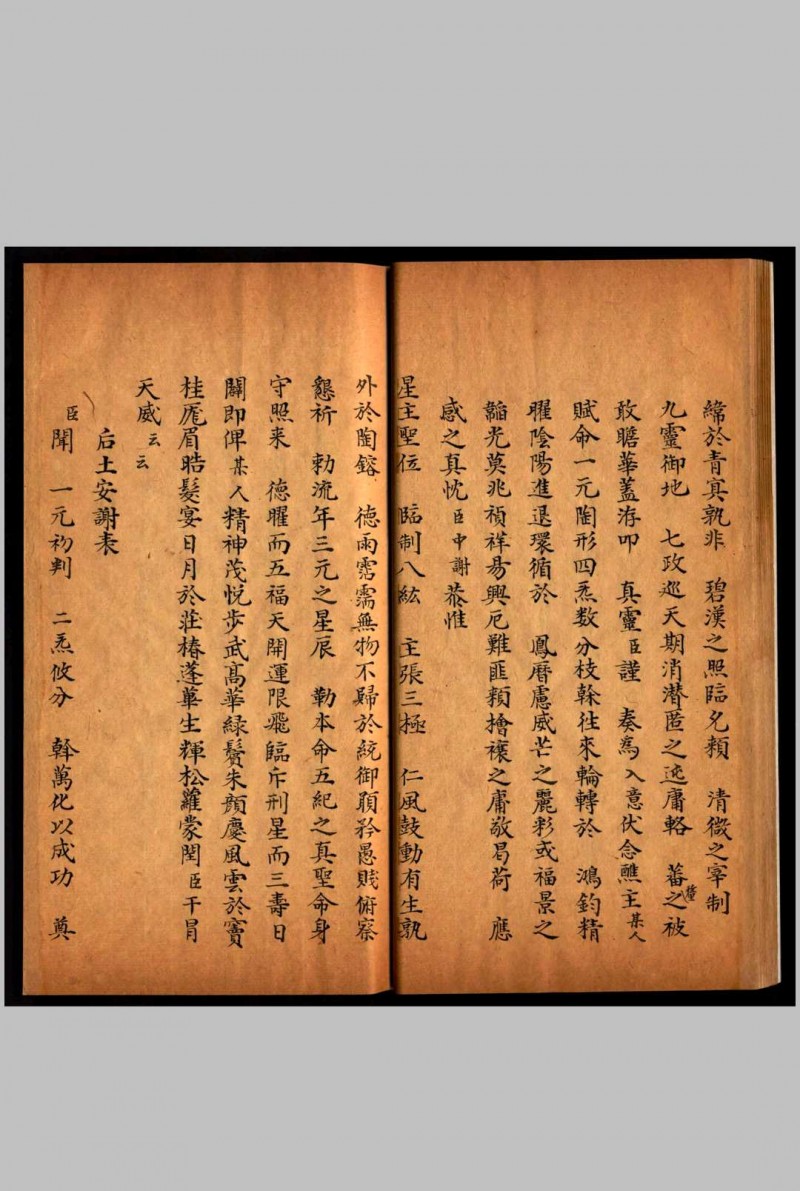 緯於青㝠孰非　碧漢之照臨允賴　清微之宰制
九靈御地　七政巡天期消潛匿之逃庸輅　蕃釐之被
敢瞻華蓋洊叩　真靈臣謹　奏為入意伏念醮主某人
賦命一元陶形四炁数分枝榦往來輪轉於　鴻鈞精
曜陰陽進退環循於　鳳曆慮威芒之麗彩或福景之
韜光莫兆禎祥易興厄難匪頼禬禳之庸敬曷荷　應
感之真忱臣中謝恭惟
星主聖位　臨制八紘　主張三極　仁風鼓動有生孰
外於陶鎔　德雨霑濡無物不歸於統御願矜愚賤俯察
懇祈　勑流年三元之星辰　勒本命五紀之真聖命身
守照來　德曜而五福天開運限飛臨斥刑星而三壽日
闢即俾某人精神茂悅步武高華緑鬢朱顔慶風雲於竇
桂厖眉晧髮宴日月於莊椿蓬蓽生輝松蘿蒙閏臣干冒
天威云云
后土安謝表
臣聞　一元初判　二炁攸分　斡萬化以成功　奠